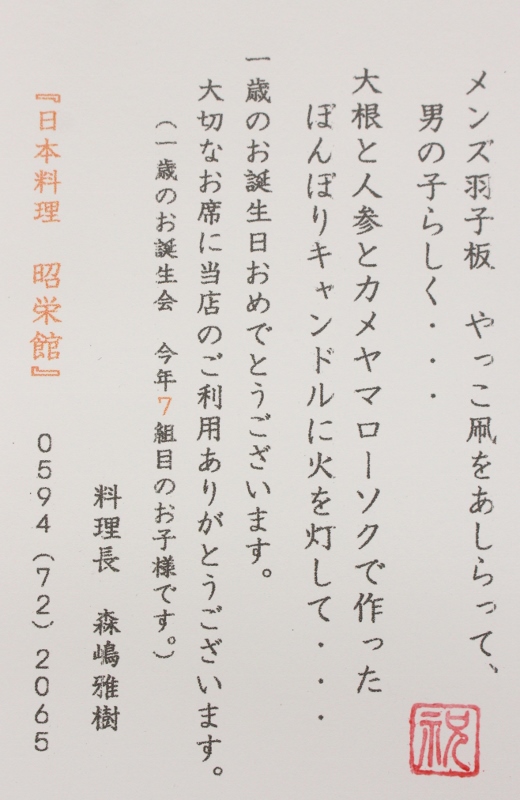 メンズ羽子板　やっこ凧をあしらって、
男の子らしく・・・
大根と人参とカメヤマローソクで作った
ぼんぼりキャンドルに火を灯して・・・
一歳のお誕生日おめでとうございます。
大切なお席に当店のご利用ありがとうございます。
（一歳のお誕生会　今年7組目のお子様です。）
料理長　森嶋雅樹
『日本料理　昭栄館』　0594（72）2065
祝